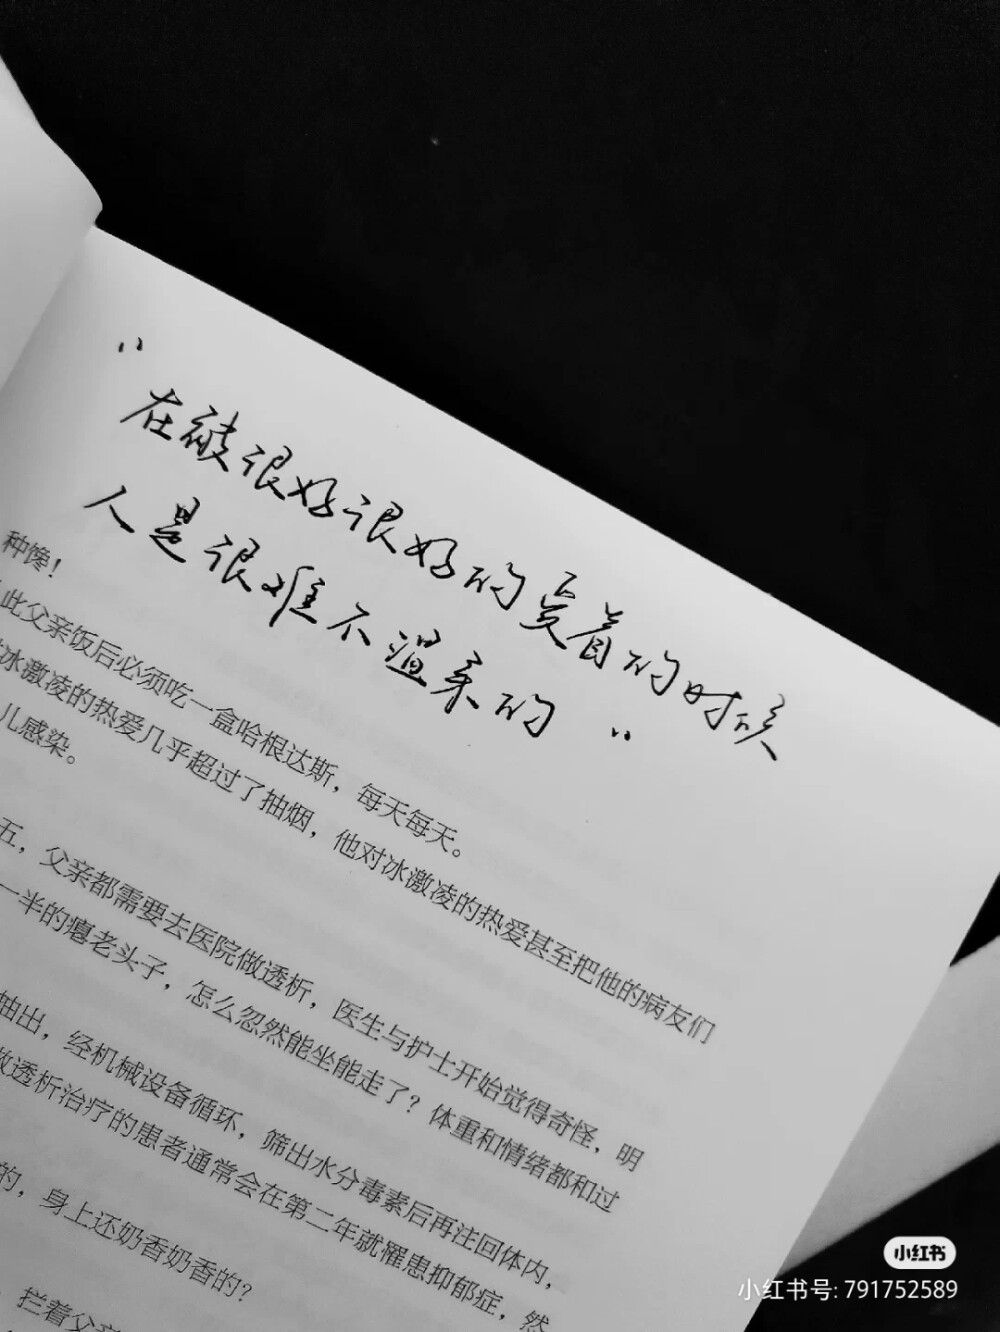 “
在被很好很好的爱着的时候
人是很难不温柔的 ”
种馋！
此父亲饭后必须吃一盒哈根达斯，每天每天。
冰激凌的热爱几乎超过了抽烟，他对冰激凌的热爱甚至把他的病友们
儿感染。
五，父亲都需要去医院做透析，医生与护士开始觉得奇怪，明
一半的瘪老头子，怎么忽然能坐能走了？体重和情绪都和过
抽出，经机械设备循环，筛出水分毒素后再注回体内，
透析治疗的患者通常会在第二年就罹患抑郁症，然
的，身上还奶香奶香的？
拦着父亲
小红书
小红书号: 791752589